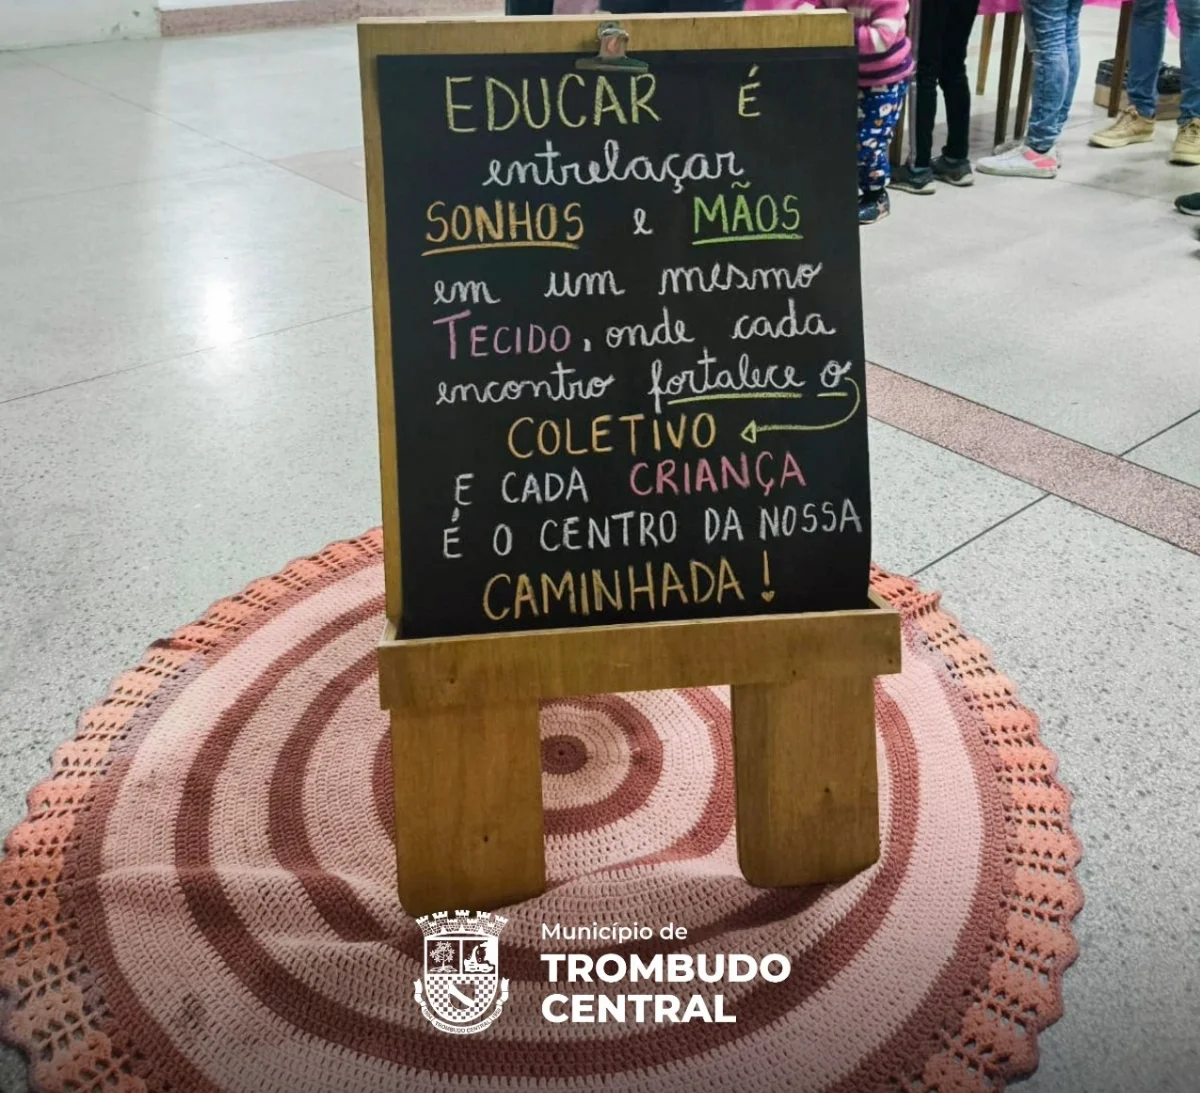 EDUCAR É
entrelaçar
SONHOS e MÃOS
em um mesmo
TECIDO, onde cada
encontro fortalece o
COLETIVO
E CADA CRIANÇA
É O CENTRO DA NOSSA
CAMINHADA!
Município de
TROMBUDO
CENTRAL
TROMBUDO CENTRAL